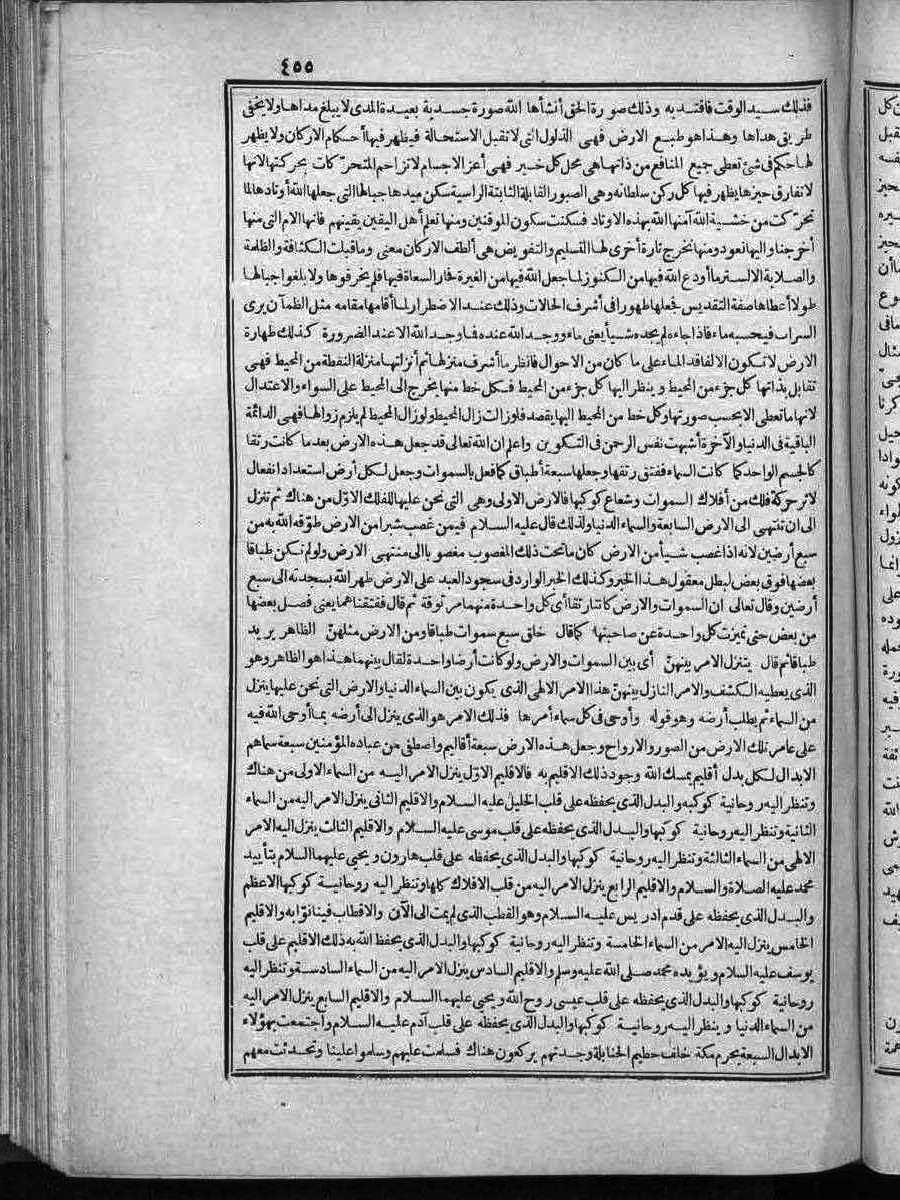 ٤٥٥
فذلك سيد الوقت فاقتد به وذلك صورة الحق أنشأها الله صورة جسدية بعيدة المدى لا يبلغ مداها ولا يخفى
طريق هداها وهذا هو طبع الارض فهى الذلول التى لا تقبل الاستحالة فيظهر فيها أحكام الاركان ولا يظهر
لها حكم فى شئ تعطى جميع المنافع من ذاتها هى محل كل خير فهى أعز الاجسام لا تزاحم المتحركات بحركتها لانها
لا تفارق حيزها يظهر فيها كل ركن سلطانه وهى الصبور القابلة الثابتة الراسية سكن ميدها جبالها التى جعلها الله أوتادها لما
تحركت من خشية الله آمنها الله بهذه الاوتاد فسكنت سكون الموقنين ومنها تعلم أهل اليقين يقينهم فانها الام التى منها
أخرجنا واليها نعود ومنها نخرج تارة أخرى لها التسليم والتفويض هى ألطف الاركان معنى وما قبلت الكثافة والظلمة
والصلابة الا لستر ما أودع الله فيها من الكنوز لما جعل الله فيها من الغيرة فحار السعاة فيها فلم يخرقوها ولا بلغوا جبالها
طولا أعطاها صفة التقديس فجعلها طهورا فى أشرف الحالات وذلك عند الاضطرار لما أقامها مقامه مثل الظمآن يرى
السراب فيحسبه ماء فاذا جاءه لم يجده شيأ يعنى ماء ووجد الله عنده فما وجد الله الا عند الضرورة كذلك طهارة
الارض لا تكون الا لفاقد الماء على ما كان من الاحوال فانظر ما أشرف منزلها ثم أنزلها منزلة النقطة من المحيط فهى
تقابل بذاتها كل جزء من المحيط وينظر اليها كل جزء من المحيط فكل خط منها يخرج الى المحيط على السواء والاعتدال
لانها ما تعطى الا بحسب صورتها وكل خط من المحيط اليها يقصد فلو زالت زال المحيط ولو زال المحيط لم يلزم زوالها فهى الدائمة
الباقية فى الدنيا والآخرة أشبهت نفس الرحمن فى التكوين واعلم ان الله تعالى قد جعل هذه الارض بعد ما كانت رتقا
كالجسم الواحد كما كانت السماء ففتق رتقها وجعلها سبعة أطباق كما فعل بالسموات وجعل لكل أرض استعداد انفعال
لاثر حركة فلك من أفلاك السموات وشعاع كوكبها فالارض الاولى وهى التى نحن عليها للفلك الاول من هناك ثم تنزل
الى ان تنتهى الى الارض السابعة والسماء الدنيا ولذلك قال عليه السلام فيمن غصب شبرا من الارض طوقه الله به من
سبع أرضين لانه اذا غصب شيأ من الارض كان ما تحت ذلك المغصوب مغصوبا الى منتهى الارض ولو لم تكن طباقا
بعضها فوق بعض لبطل معقول هذا الخبر وكذلك الخبر الوارد فى سجود العبد على الارض طهر الله بسجدته الى سبع
أرضين وقال تعالى ان السموات والارض كانتا رتقا أى كل واحدة منهما مرتوقة ثم قال ففتقناهما يعنى فصل بعضها
من بعض حتى تميزت كل واحدة عن صاحبتها كما قال خلق سبع سموات طباقا ومن الارض مثلهن الظاهر يريد
طباقا ثم قال يتنزل الامر بينهن أى بين السموات والارض ولو كانت أرضا واحدة لقال بينهما هذا هو الظاهر وهو
الذى يعطيه الكشف والامر النازل بينهن هذا الامر الالهى الذى يكون بين السماء الدنيا والارض التى نحن عليها ينزل
من السماء ثم يطلب أرضه وهو قوله وأوحى فى كل سماء أمرها فذلك الامر هو الذى ينزل الى أرضه بما أوحى الله فيه
على عامر تلك الارض من الصور والارواح وجعل هذه الارض سبعة أقاليم واصطفى من عباده المؤمنين سبعة سماهم
الابدال لكل بدل أقليم يمسك الله وجود ذلك الاقليم به فالاقليم الاول ينزل الامر اليه من السماء الاولى من هناك
وتنظر اليه روحانية كوكبه والبدل الذى يحفظه على قلب الخليل عليه السلام والاقليم الثانى ينزل الامر اليه من السماء
الثانية وتنظر اليه روحانية كوكبها والبدل الذى يحفظه على قلب موسى عليه السلام والاقليم الثالث ينزل اليه الامر
الالهى من السماء الثالثة وتنظر اليه روحانية كوكبها والبدل الذى يحفظه على قلب هارون ويحيى عليهما السلام بتأييد
محمد عليه الصلاة والسلام والاقليم الرابع ينزل الامر اليه من قلب الافلاك كلها وتنظر اليه روحانية كوكبها الاعظم
والبدل الذى يحفظه على قدم ادريس عليه السلام وهو القطب الذى لم يمت الى الآن والاقطاب فينا نوابه والاقليم
الخامس ينزل اليه الامر من السماء الخامسة وتنظر اليه روحانية كوكبها والبدل الذى يحفظ الله به ذلك الاقليم على قلب
يوسف عليه السلام ويؤيده محمد صلى الله عليه وسلم والاقليم السادس ينزل الامر اليه من السماء السادسة وتنظر اليه
روحانية كوكبها والبدل الذى يحفظه على قلب عيسى روح الله ويحيى عليهما السلام والاقليم السابع ينزل الامر اليه
من السماء الدنيا وينظر اليه روحانية كوكبها والبدل الذى يحفظه على قلب آدم عليه السلام واجتمعت بهؤلاء
الابدال السبعة بحرم مكة خلف حطيم الحنابلة وجدتهم يركعون هناك فسلمت عليهم وسلموا علينا وتحدثت معهم